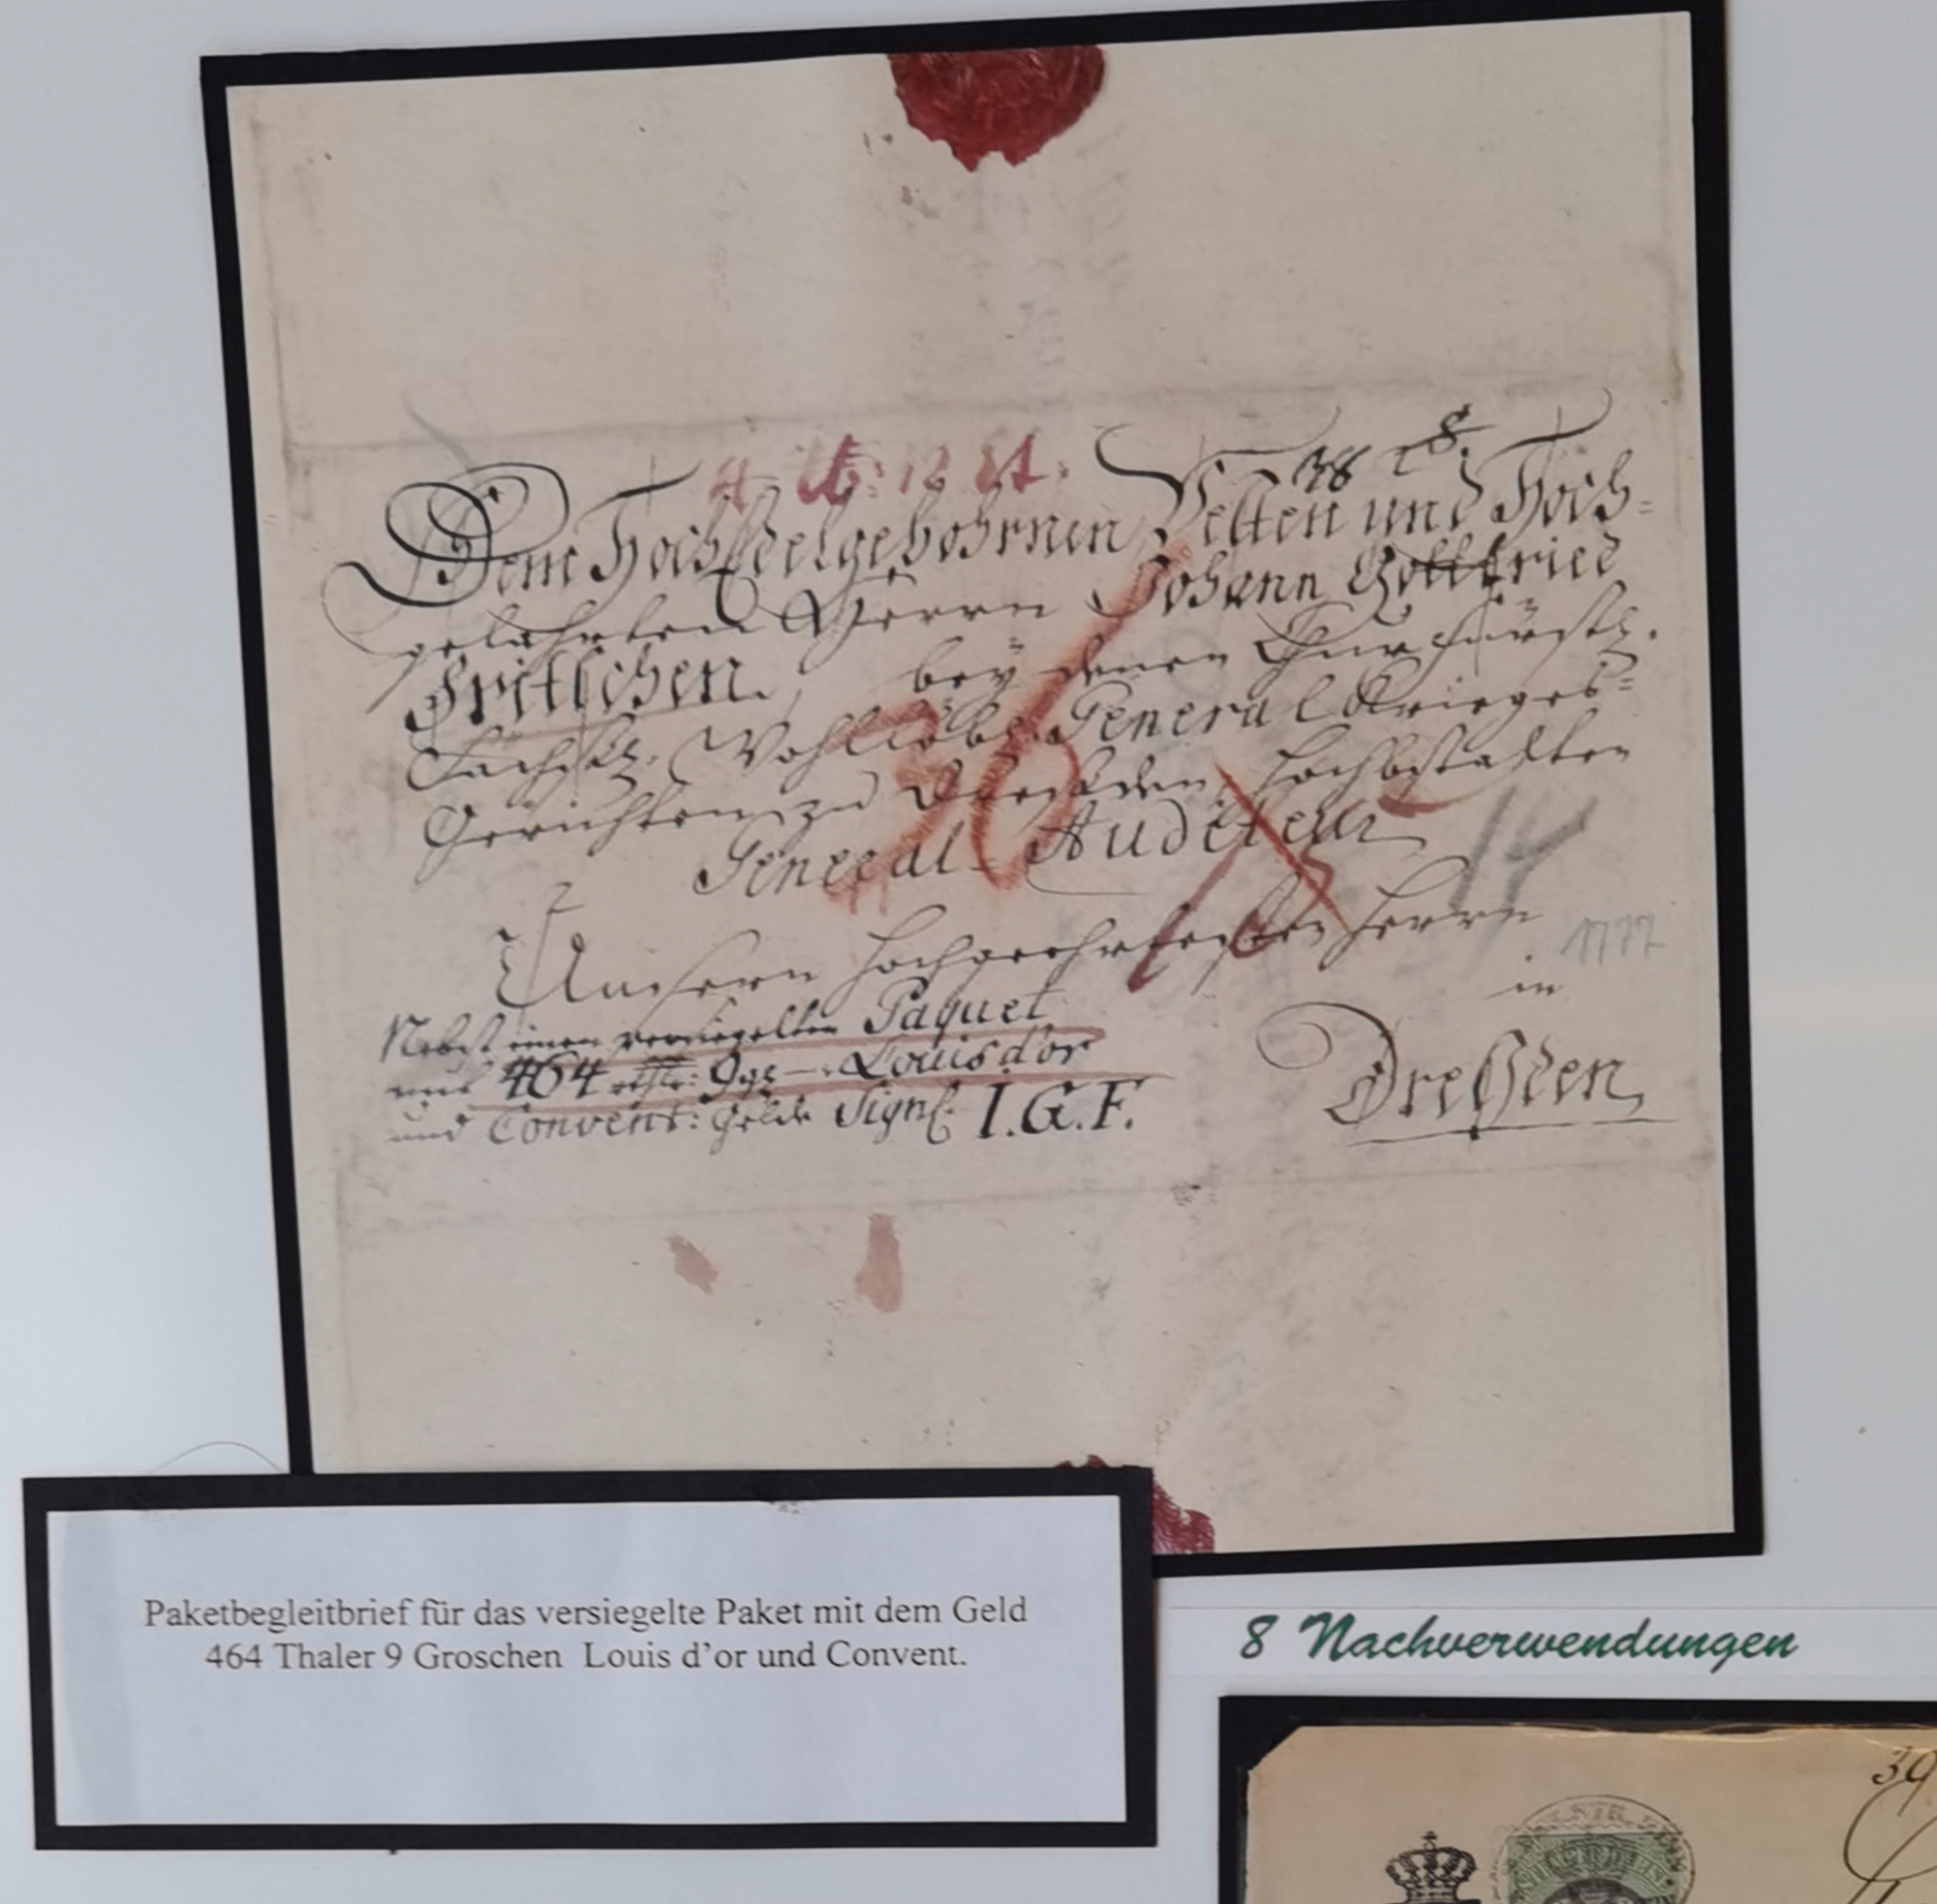 4 ℔: 12 Lt:
38 8.
Dem HochEdelgebohrnen Vesten und Hoch=
gelahrten Herrn Johann Gottfried
Fritschen. bey denen Churfürstl.
Sächßl. Wohllöbl. General Krieges=
Gerichten zu Dresden Hochbestalten
General Auditeur
36
14
Unsern Hochgeehrtesten Herrn
1777
in
Dreßden
Nebst einen versiegelten Paquet
mit 464 rthlr: 9 gr Louis d'or
und Convent: Gelde Sign. I.G.F.
Paketbegleitbrief für das versiegelte Paket mit dem Geld
464 Thaler 9 Groschen Louis d'or und Convent.
8 Nachverwendungen
39